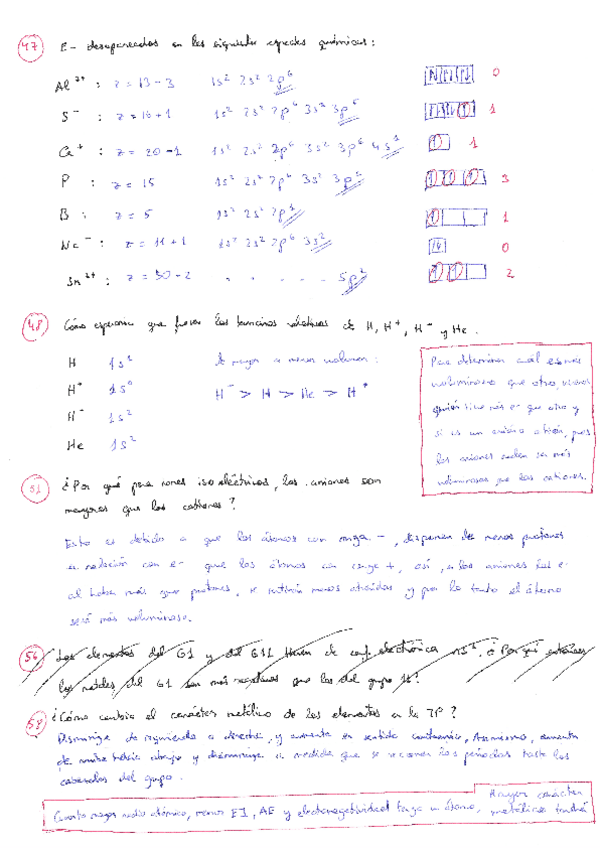 47 E- desapareados en las siguientes especies químicas:
Al3+ : z = 13 - 3 1s2 2s2 2p6 0
S- : z = 16 + 1 1s2 2s2 2p6 3s2 3p5 1
Ca+ : z = 20 - 1 1s2 2s2 2p6 3s2 3p6 4s1 1
P : z = 15 1s2 2s2 2p6 3s2 3p3 3
B : z = 5 1s2 2s2 2p1 1
Na- : z = 11 + 1 1s2 2s2 2p6 3s2 0
Sn2+ : z = 50 - 2 5p2 2
48 Cómo que fueran los tamaños relativos de H, H+, H- y He.
H 1s1 De mayor a menor volumen:
H+ 1s0 H- > H > He > H+
H- 1s2
He 1s2
Para determinar cuál es más
voluminoso que otro,
quién tiene más e- que otro y
si es un anión o catión, pues
los aniones suelen ser más
voluminosos que los cationes.
51 ¿Por qué para iones isoeléctricos, los aniones son
mayores que los cationes?
Esto es debido a que los átomos con carga -, disponen de menos protones
en relación con e- que los átomos con carga +, así, en los aniones los e-
al haber más que protones, se sentirán menos atraídos y por lo tanto el átomo
será más voluminoso.
56 Los elementos del G1 y del G11 tienen de conf. electrónica ns1. ¿Por qué entonces
los metales del G1 son más reactivos que los del grupo 11?
58 ¿Cómo cambia el carácter metálico de los elementos en la TP?
Disminuye de izquierda a derecha, y aumenta en sentido contrario, Asimismo, aumenta
de arriba hacia abajo y disminuye a medida que se recorren los períodos hasta los
del grupo.
Cuanto mayor radio atómico, menos EI, AE y electronegatividad tenga un átomo,
Mayor carácter
metálico tendrá